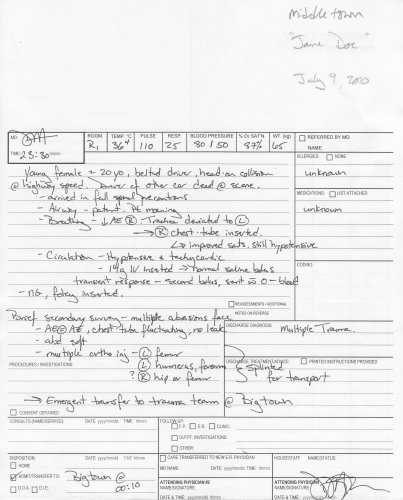 Middletown
"Jane Doe"
July 9, 2010
MD:
TIME: 23:30 hh/mm
ROOM R1
TEMP. °C 36⁴
PULSE 110
RESP 25
BLOOD PRESSURE 80/50
% O2 SAT'N. 87%
WT. (Kg) 65
REFERRED BY MD
NAME:
ALLERGIES: NONE
unknown
MEDICATIONS: LIST ATTACHED
unknown
CODING
Young female ≈ 20 yo, belted driver, head-on collision
@ highway speed. Driver of other car dead @ scene.
- arrived in full spinal precautions
- Airway - patent. Pt moaning
- Breathing - ↓AE (R). Trachea deviated to (L)
→ (R) chest tube inserted.
↳ improved sats, still hypotensive
- Circulation - Hypotensive & tachycardic
- 14g IV inserted → normal saline bolus
transient response - second bolus, sent O- blood
- NG, foley inserted.
REASSESSMENTS / ADDITIONAL
NOTES ON REVERSE
Brief secondary survey - multiple abrasions face
- AE=AE, chest tube fluctuating, no leak
- abd soft
- multiple ortho inj - (L) femur
(L) humerus, forearm
? (R) hip or femur
splinted
for transport
DISCHARGE DIAGNOSIS
Multiple Trauma.
DISCHARGE TREATMENT/ADVICE
PRINTED INSTRUCTIONS PROVIDED
PROCEDURES / INVESTIGATIONS
→ Emergent transfer to trauma team @ Bigtown
CONSENT OBTAINED
CONSULTS (NAME/SERVICE) DATE yyyy/mm/dd TIME hh/mm
FOLLOW UP
F.P. E.R. CLINIC
OUTPT. INVESTIGATIONS
OTHER:
DISPOSITION DATE yyyy/mm/dd TIME hh/mm
HOME
ADMIT/TRANSFER TO Bigtown @
00:10
D.O.A. D.I.E.
CARE TRANSFERRED TO NEW E.R. PHYSICIAN
MD NAME DATE yyyy/mm/dd TIME hh/mm
ATTENDING PHYSICIAN #2
NAME/SIGNATURE:
DATE & TIME yyyy/mm/dd hh/mm
HOUSESTAFF NAME/SIGNATURE
ATTENDING PHYSICIAN
NAME/SIGNATURE:
DATE & TIME yyyy/mm/dd hh/mm